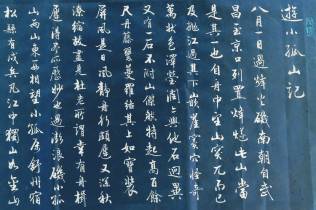 游小孤山记
八月一日過烽火磯南朝自武
昌至京口列置烽燧此山當
是其一也自舟中望山突兀而已
及抛江過其下嵌巖竇穴怪奇
萬狀色澤瑩潤與他石迥異
又有一石不附山傑然特起高百餘
尺丹藤翠蔓羅絡其上如寶裝
屏風是日風静舟行頗遲又深秋
潦縮故盡見杜老所謂幸有舟楫
遲得盡所歷妙也過澎浪磯小孤
山二山東西相望小孤屬舒州宿
松縣有戍兵凡江中獨山如金山